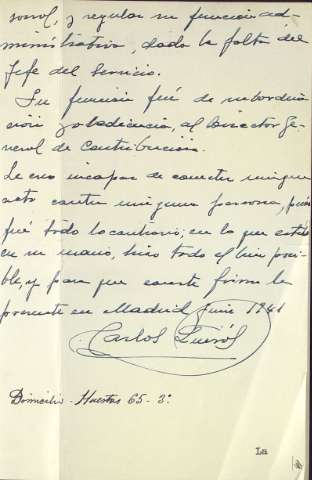 sonal, y regular su funcion ad-
ministrativa, dada la falta del
Jefe del Servicio.
Su funcion fué de subordina
ción y obediencia, al Director Ge
neral de Contribucion.
Le creo incapaz de cometer ningun
acto contra ninguna persona, pues
fué todo lo contrario; en lo que estuvo
en su mano, hizo todo el bien posi-
ble, y para que conste firmo la
presente en Madrid Junio 1941
Carlos Quirós
Domicilio - Huertas 65 - 3º
La